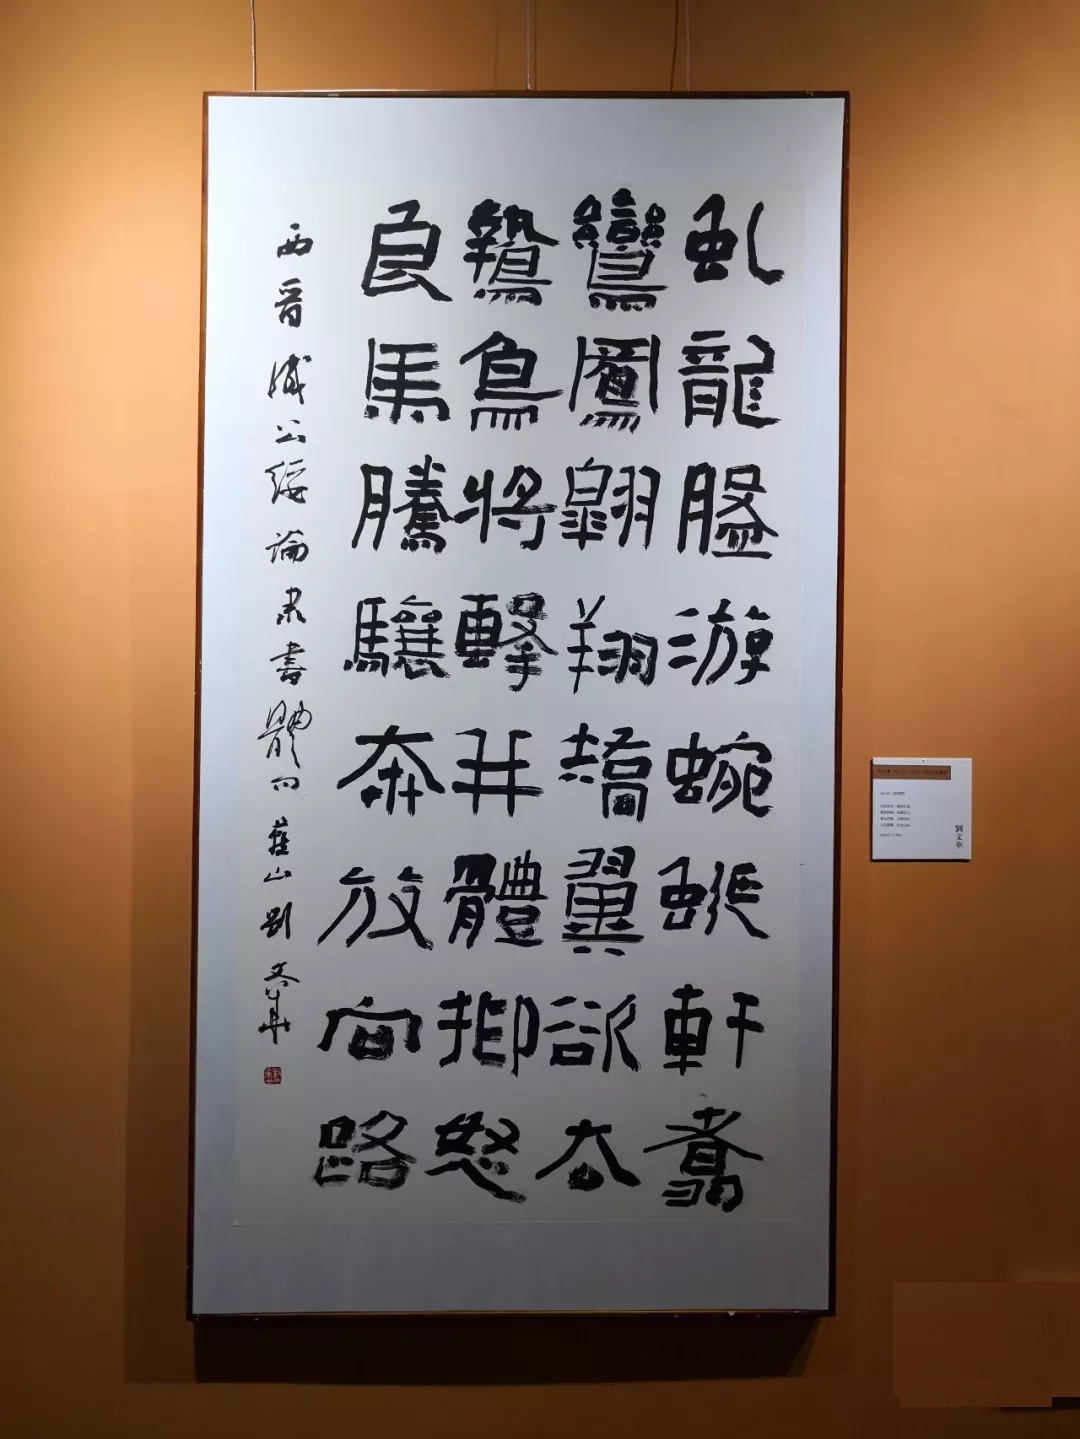 虬龍盤游蜿蜒軒翥
鸞鳳翺翔矯翼欲去
鷙鳥將擊并體抑怒
良馬騰驤奔放向路
西晉成公綏論隶書體句 舊山劉文華
劉文華